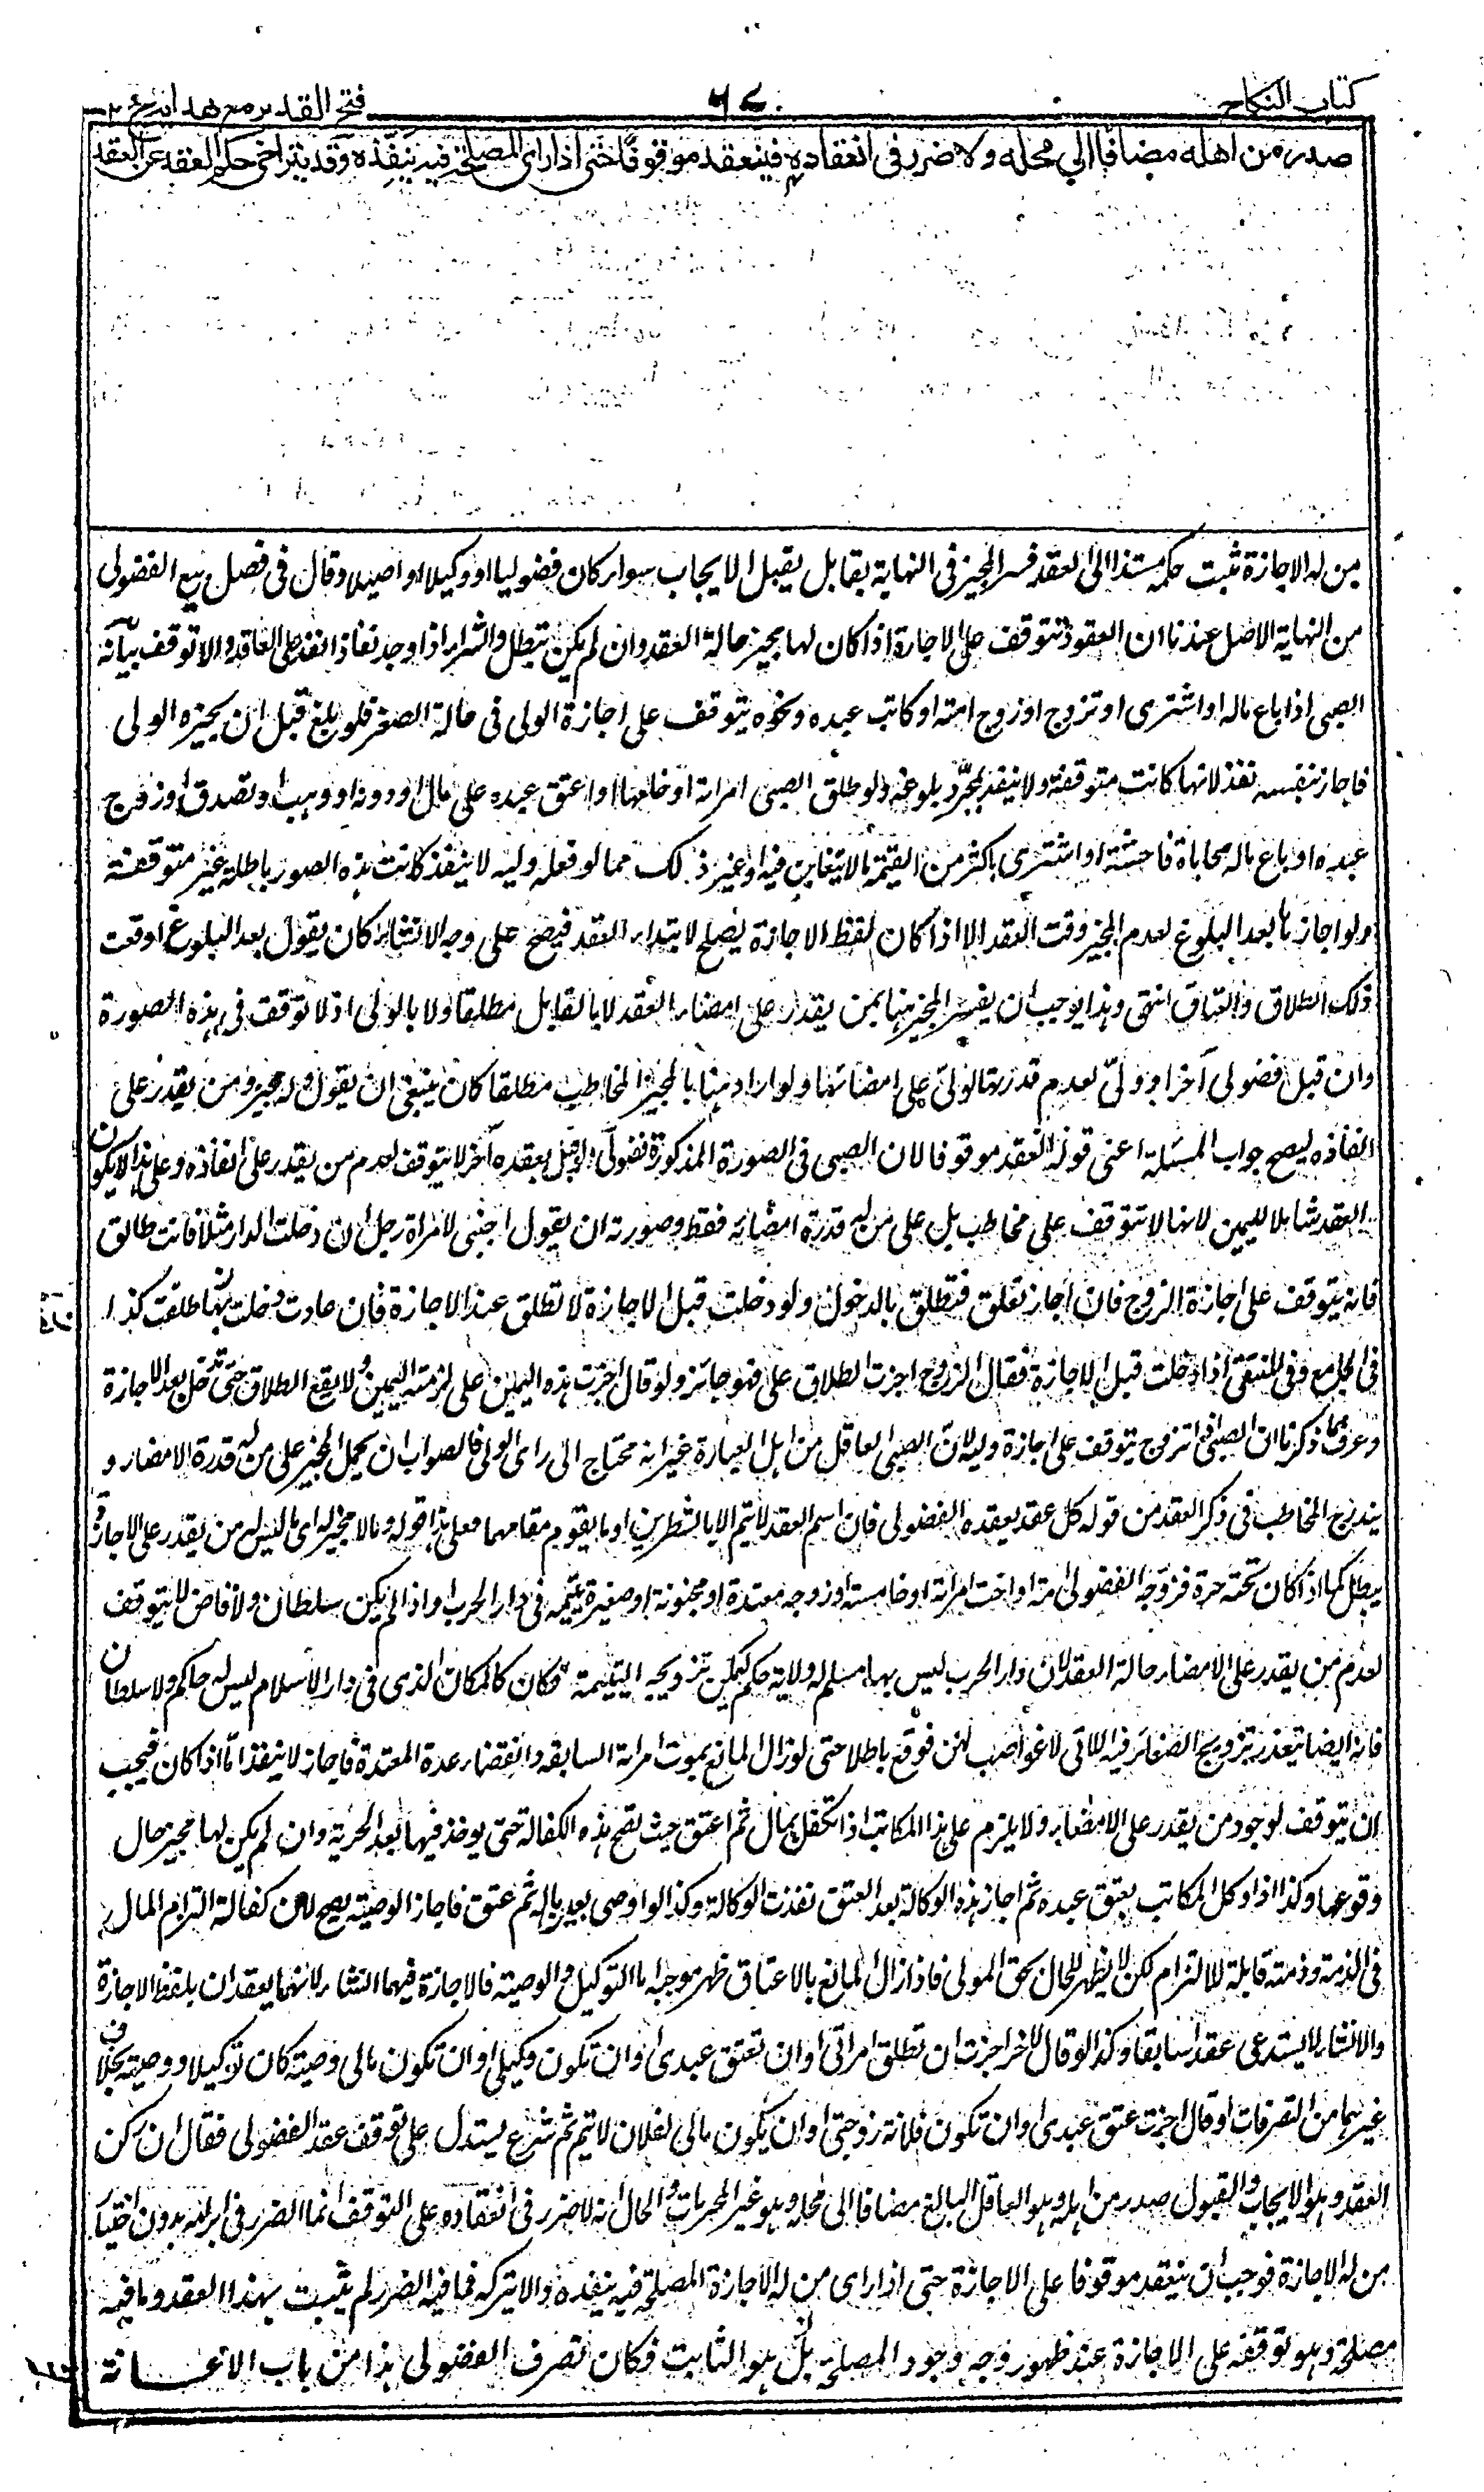 كتاب النكاح
٦٧
فتح القدير مع هدايه ج ٢
صدر من اهله مضافا الي محله ولا ضرر في انعقاده فينعقد موقوفا حتى اذا راى المصلحة فيه ينفذه وقد يتراخى حكم العقد عن العقد
من له الاجازة ثبت حكمه مستندا الى العقد فسر المجيز فى النهاية بقابل يقبل الايجاب سواء كان فضوليا او وكيلا او اصيلا وقال فى فصل بيع الفضولى
من النهاية الاصل عندنا ان العقود تتوقف على الاجازة اذا كان لها مجيز حالة العقد وان لم يكن تبطل والشراء اذا وجد نفاذا نفذ على العاقد والا توقف بيانه
الصبى اذا باع ماله او اشترى او تزوج او زوج امته او كاتب عبده ونحوه يتوقف على اجازة الولى فى حالة الصغر فلو بلغ قبل ان يجيزه الولى
فاجاز بنفسه نفذ لانها كانت متوقفة ولا ينفذ بمجرد بلوغه ولو طلق الصبى امراته او خلعها او اعتق عبده على مال او دونه او وهب او تصدق او زوج
عبده او باع ماله محاباة فاحشة او اشترى باكثر من القيمة ما لا يتغابن فيه او غير ذلك مما لو فعله وليه لا ينفذ كانت هذه الصور باطلة غير متوقفة
ولو اجازها بعد البلوغ لعدم المجيز وقت العقد الا اذا كان لفظ الاجازة يصلح لابتداء العقد فيصح على وجه الانشاء كان يقول بعد البلوغ اوقعت
ذلك الطلاق والعتاق انتهى وهذا يوجب ان يفسر المجيز هنا بمن يقدر على امضاء العقد لا بالقابل مطلقا ولا بالولى اذ لا توقف فى هذه الصورة
وان قبل فضولى آخر او ولى لعدم قدرة الولى على امضائها ولو اراد هنا بالمجيز المخاطب مطلقا كان ينبغى ان يقول وله مجيز ومن يقدر على
انفاذه ليصح جواب المسئلة اعنى قوله انعقد موقوفا لان الصبى فى الصورة المذكورة فضولى ولو قبل بعقده آخر لا يتوقف لعدم من يقدر على انفاذه وعلى هذا لا يكون
العقد شاملا لليمين لانها لا تتوقف على مخاطب بل على من له قدرة امضائه فقط وصورته ان يقول اجنبى لامراة رجل ان دخلت الدار مثلا فانت طالق
فانه يتوقف على اجازة الزوج فان اجاز تعلق فتطلق بالدخول ولو دخلت قبل الاجازة لا تطلق عند الاجازة فان عادت دخلت بعدها طلقت كذا
فى الجامع وفى المنتقى اذا دخلت قبل الاجازة فقال الزوج اجزت الطلاق على فهو جائز ولو قال اجزت هذه اليمين على لزمته اليمين ولا يقع الطلاق حتى تدخل بعد الاجازة
وعرف مما ذكرنا ان الصبى اذا تزوج يتوقف على اجازة وليه لان الصبى العاقل من اهل العبارة غير انه محتاج الى راى الولى فالصواب ان يحمل المجيز على من له قدرة الامضاء و
يندرج المخاطب فى ذكر العقد من قوله كل عقد يعقده الفضولى فان اسم العقد لا يتم الا بالشطرين او ما يقوم مقامهما وعلى هذا قوله وما لا مجيز له اى ما ليس له من يقدر على الاجازة
يبطل كما اذا كان تحته حرة فزوجه الفضولى امة او اخت امراته او خامسة او زوجه معتدة او مجنونة او صغيرة يتيمه فى دار الحرب او اذا لم يكن سلطان ولا قاض لا يتوقف
لعدم من يقدر على الامضاء حالة العقد لان دار الحرب ليس بها مسلم له ولاية حكم ليمكن تزويجه اليتيمة فكان كالمكان الذى فى دار الاسلام ليس له حاكم ولا سلطان
فانه ايضا يتعذر تزويج الصغائر فيه اللاتى لا عواصب لهن فوقع باطلا حتى لو زال المانع بموت امراته السابقه وانقضاء عدة المعتدة فاجاز لا ينفذ اما اذا كان فيجب
ان يتوقف لوجود من يقدر على الامضاء ولا يلزم على هذا المكاتب اذا تكفل بمال ثم اعتق حيث تصح هذه الكفالة حتى يوخذ فيها بعد الحرية وان لم يكن لها مجيز حال
وقوعها وكذا اذا وكل المكاتب بعتق عبده ثم اجاز هذه الوكالة بعد العتق نفذت الوكالة وكذا لو اوصى بعين ماله ثم عتق فاجاز الوصية يصح لان كفالته التزام المال
فى الذمة وذمته قابلة للالتزام لكن لا يظهر للحال بحق المولى فاذا زال المانع بالاعتاق ظهر موجبه اما التوكيل والوصية فالاجازة فيهما انشاء لانهما يعقدان بلفظ الاجازة
والانشاء لا يستدعى عقدا سابقا وكذا لو قال لآخر اجزت ان تطلق امراتى او ان تعتق عبدى او ان تكون وكيلى او ان تكون مالى وصية كان توكيلا ووصية بخلاف
غيرهما من التصرفات او قال اجزت عتق عبدى او ان تكون فلانة زوجتى او ان يكون مالى لفلان لا تتم ثم شرع يستدل على توقف عقد الفضولى فقال ان ركن
العقد وهو الايجاب والقبول صدر من اهله وهو العاقل البالغ مضافا الى محله وهو غير المحرمات والحال انه لا ضرر فى انعقاده على التوقف انما الضرر فى ابرامه بدون اختيار
من له الاجازة فوجب ان ينعقد موقوفا على الاجازة حتى اذا راى من له الاجازة المصلحة فيه ينفذه والا يتركه فما فيه الضرر لم يثبت بهذا العقد وما فيه
مصلحة وهو توقفه على الاجازة عند ظهور وجه وجود المصلحة بل هو الثابت فكان تصرف الفضولى هذا من باب الاعانة